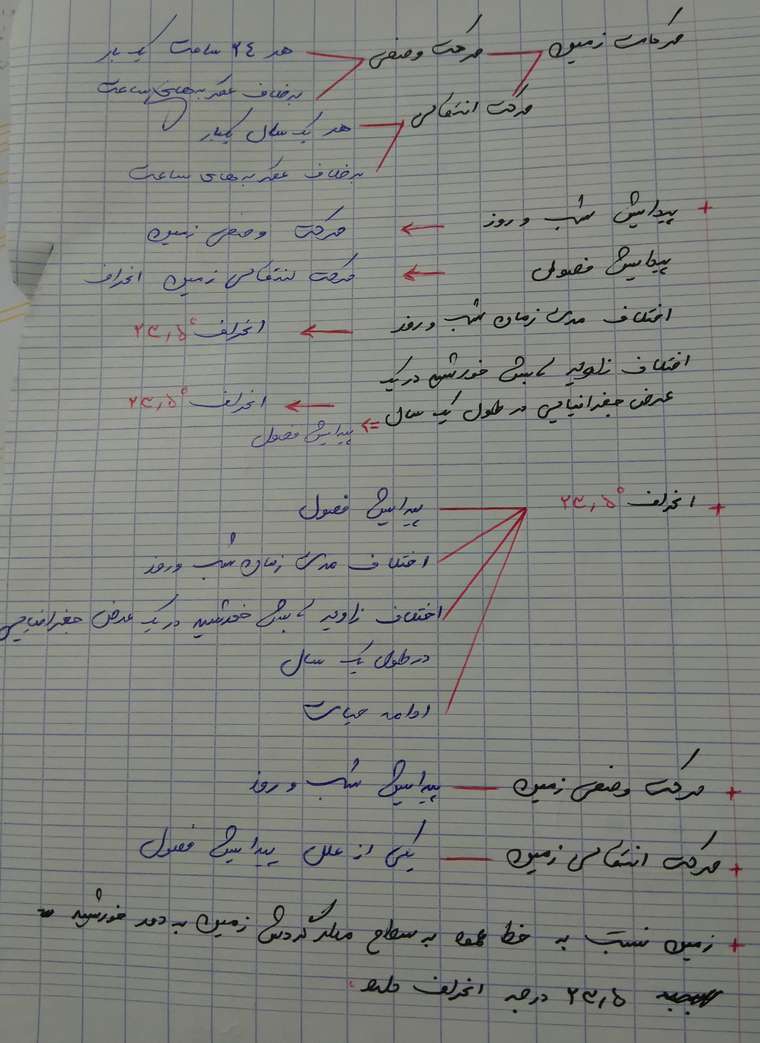 حرکات زمین
حرکت وضعی
هر ۲۴ ساعت یک بار
برخلاف عقربه‌های ساعت
حرکت انتقالی
هر یک سال یکبار
برخلاف عقربه‌های ساعت
+ پیدایش شب و روز ← حرکت وضعی زمین
پیدایش فصول ← حرکت انتقالی زمین انحراف
اختلاف مدت زمان شب و روز ← انحراف ۲۳٫۵°
اختلاف زاویه تابش خورشید در یک
عرض جغرافیایی در طول یک سال ← انحراف ۲۳٫۵°
=> پیدایش فصول
+ انحراف ۲۳٫۵°
پیدایش فصول
اختلاف مدت زمان شب و روز
اختلاف زاویه تابش خورشید در یک عرض جغرافیایی
در طول یک سال
ادامه حیات
+ حرکت وضعی زمین — پیدایش شب و روز
+ حرکت انتقالی زمین — یکی از علل پیدایش فصول
+ زمین نسبت به خط عمود به سطح مدار گردش زمین به دور خورشید
۲۳٫۵ درجه انحراف دارد.